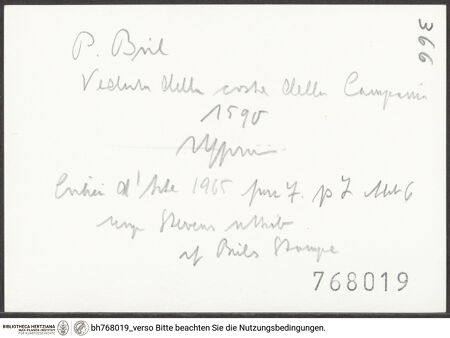 366
P. Bril
Veduta della costa della Campania
1590
Critica d'Arte 1965
Stevens
Brils Stampe
768019
BIBLIOTHECA HERTZIANA
MAX-PLANCK-INSTITUT
FÜR KUNSTGESCHICHTE
bh768019_verso Bitte beachten Sie die Nutzungsbedingungen.